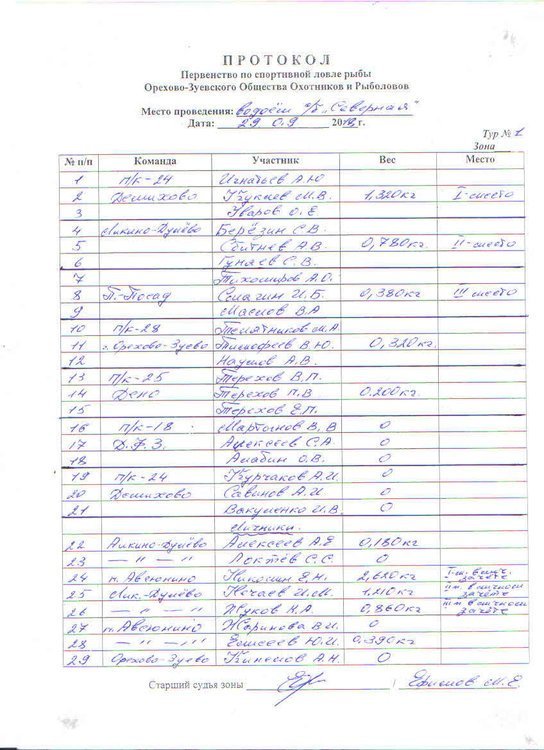 ПРОТОКОЛ
Первенство по спортивной ловле рыбы
Орехово-Зуевского Общества Охотников и Рыболовов
Место проведения: водоём р/б „Северная"
Дата: 29 09 2012 г.
Тур № 1
Зона
№ п/п Команда Участник Вес Место
1 п/к-24 Игнатьев А.Ю
2 Демихово М.В. 1,320кг I-место
3 Уваров О.Е
4 Ликино-Дулёво Берёзин С.В.
5 Сбитнев А.В. 0,780кг. II-место
6 Гуняев С.В.
7 Тихомиров А.О.
8 П.-Посад Смагин И.Б. 0,380кг III место
9 Маслов В.А
10 п/к-28 Телятников М.А.
11 г. Орехово-Зуево Тимофеев В.Ю. 0,320кг.
12 Наумов А.В.
13 п/к-25 Терехов В.П.
14 Депо Терехов П.В 0.200кг.
15 Терехов Е.П.
16 п/к-18 Мартынов В.В 0
17 Д.Ф.З. Алексеев С.А 0
18 Алабин О.В. 0
19 п/к-24 Курчаков А.И. 0
20 Демихово Савинов А.И 0
21 Вакуленко И.В. 0
Личники.
22 Ликино-Дулёво Алексеев А.Е 0,180кг
23 — " — " — " Локтев С.С. 0
24 п. Авсюнино Никошин Е.Н. 2,620кг I-м. в лич. зачёте
25 Лик.-Дулёво Нечаев И.М. 1,210кг II м. в личном зачёте
26 — " — " Жуков Н.А. 0,860кг III м. в личном зачёте
27 п. Авсюнино Жаринова В.И 0
28 — " — " — " Елисеев Ю.И. 0.390кг
29 Орехово-Зуево А.Н. 0
Старший судья зоны / Ефимов М.Е.